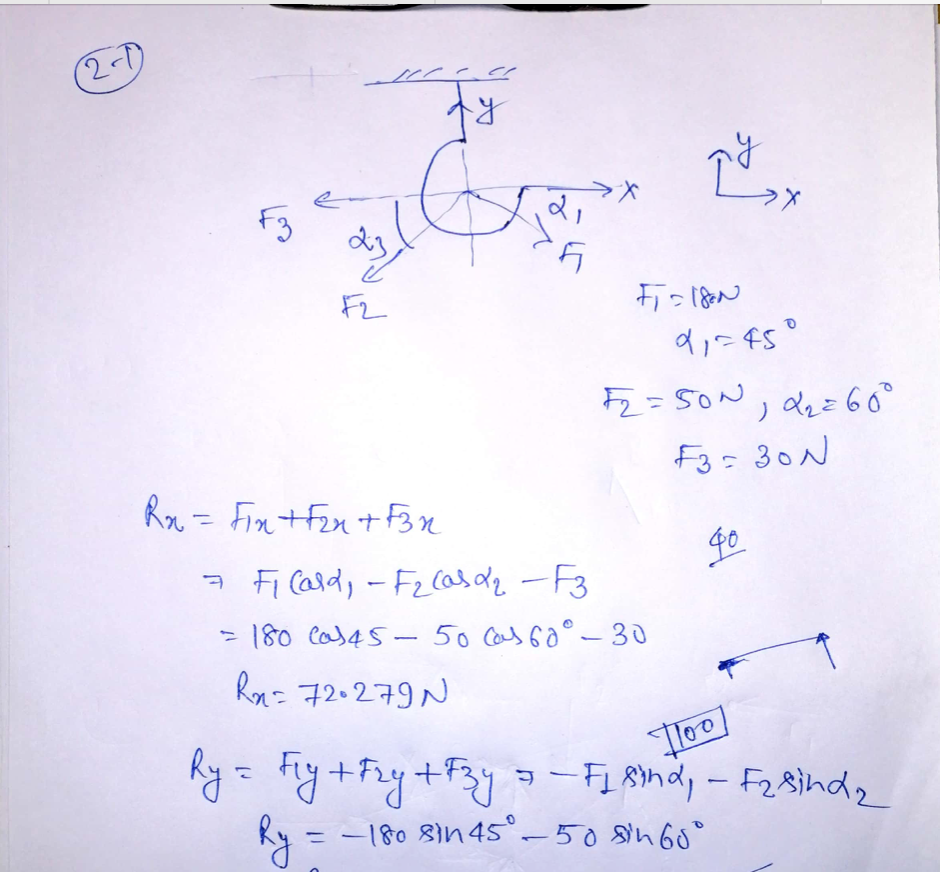 2-1
y
y
x
x
F3
α1
α3
F1
F2
F1 = 180N
α1 = 45°
F2 = 50N, α2 = 60°
F3 = 30N
Rx = F1x + F2x + F3x
40
⇒ F1 Cosα1 - F2 Cosα2 - F3
= 180 Cos45 - 50 Cos60° - 30
Rx = 72.279N
100
Ry = F1y + F2y + F3y ⇒ -F1 sinα1 - F2 sinα2
Ry = -180 sin45° - 50 sin60°